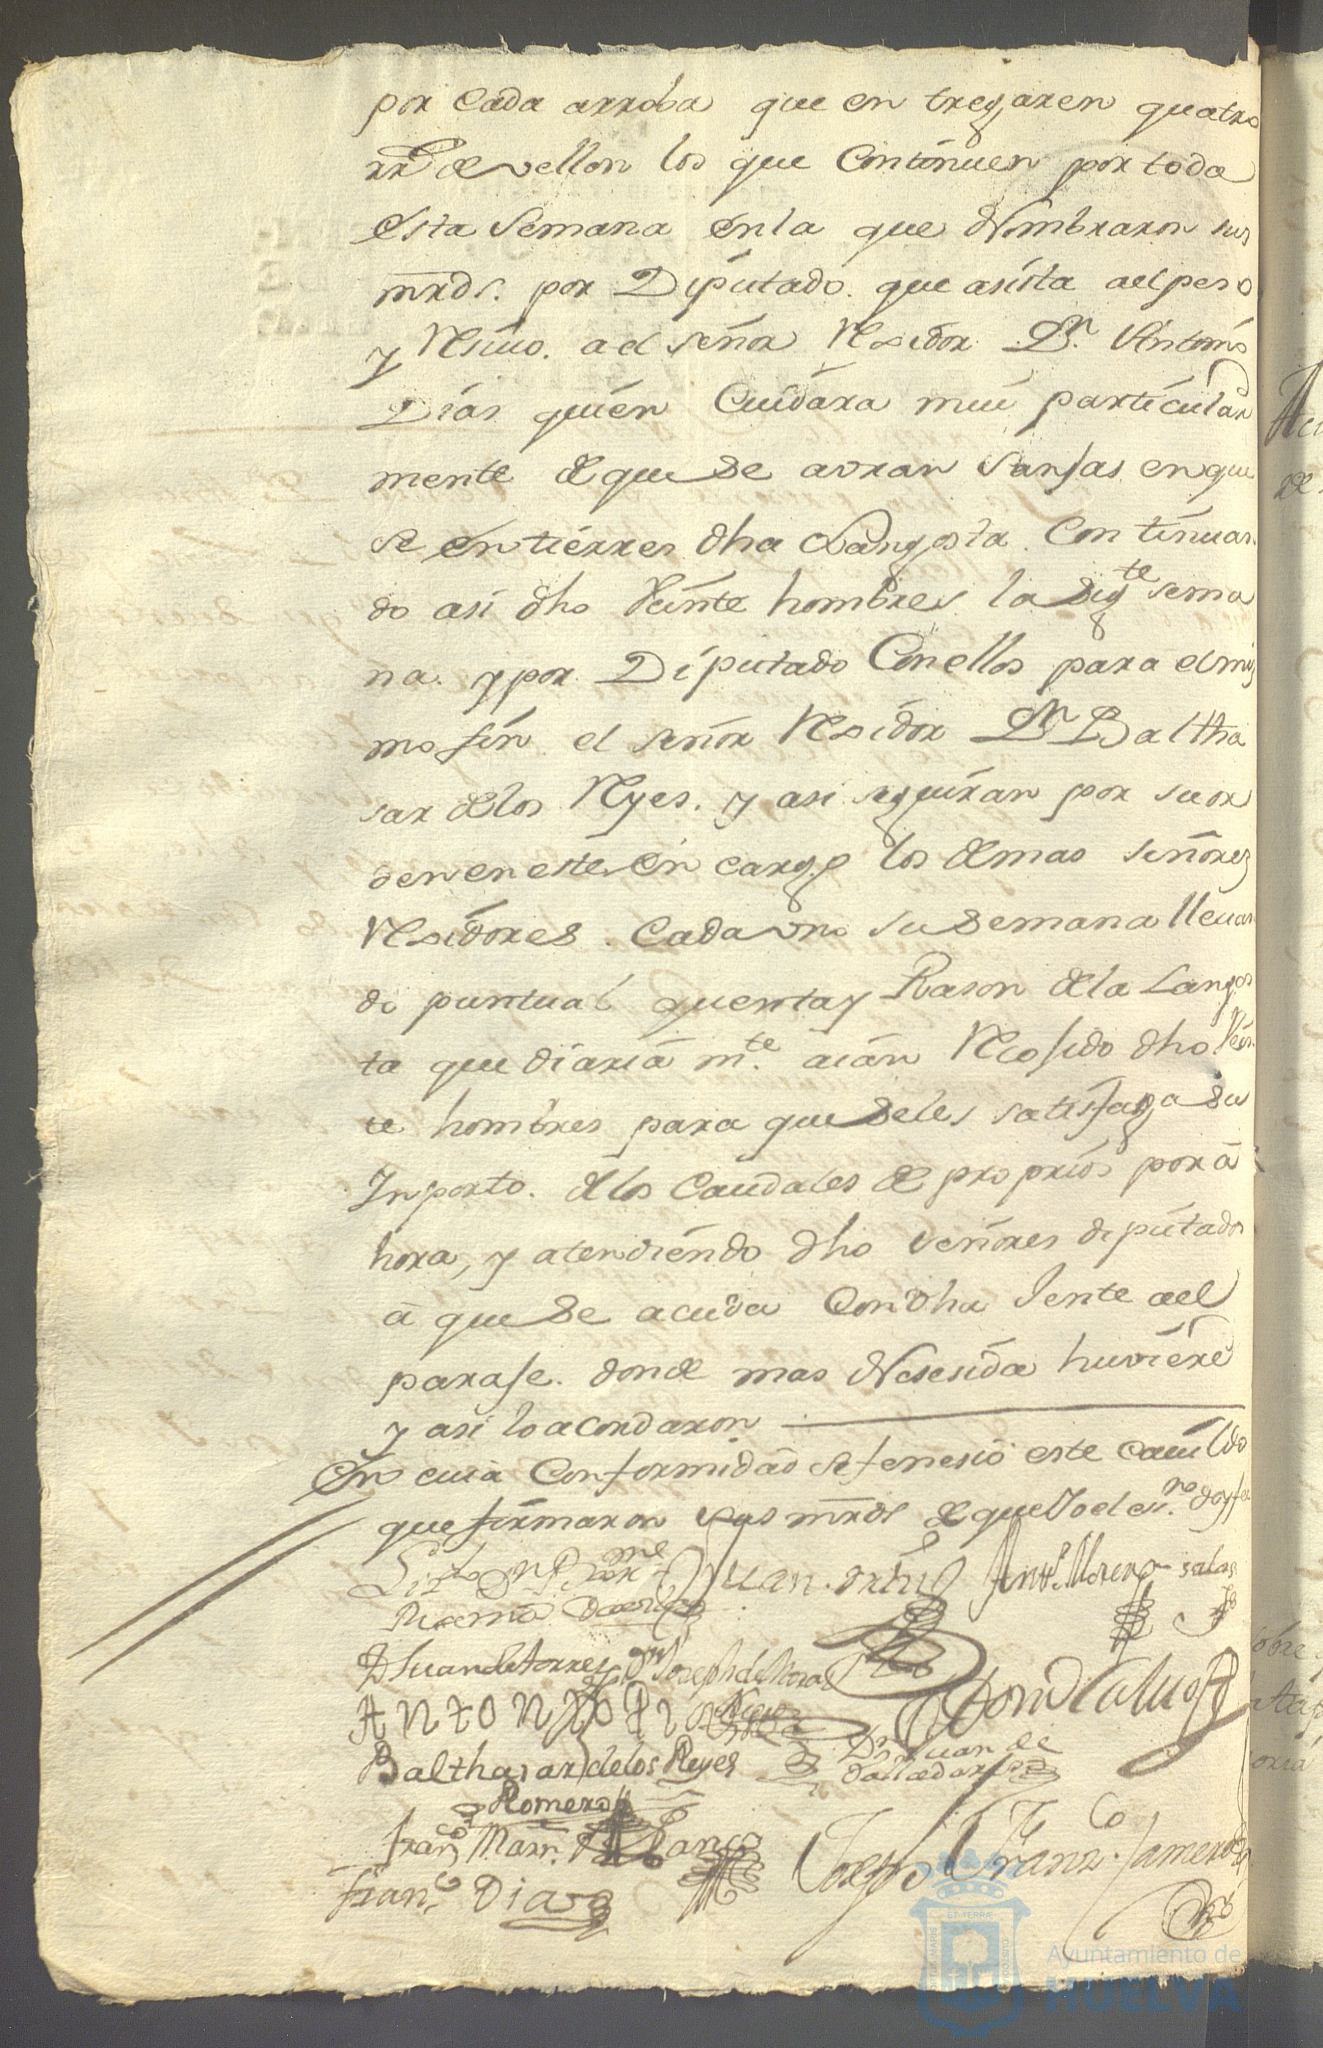 por cada arroba que en tregaren quatro
rr.s de vellon los que Continuen por toda
esta Semana en la que Nombraron sus
mrds. por Diputado. que asista ael peso
y Resiuo. a el señor Rexidor Dn. Antonio
Dias quien Cuidara mui particular
mente de que se abran sanjas en que
se entierre dha Langosta. Continuan
do asi dho Veinte hombres la sigte sema
na. y por Diputado Con ellos para el mis
mo fin el señor Rexidor Dn Baltha
sar de los Reyes. y asi seguiran por su or
den en este en cargo los demas señores
Rexidores. Cada vno su Semana lleuan
do puntual quenta y Rason de la Langos
ta que diaria mte. aian Recojido dho Vein
te hombres para que se les satisfaga su
Inporto. de los Caudales de proprios por a
hora, y atendiendo dho señores diputados
a que se acuda Con dha Jente ael
paraje. donde mas Nesesida huviere
y asi lo acordaron
En cuia Conformidad se fenesio este cauildo
que firmaron sus mrds de que Yo el esno. doy fe
Juan. ortiz Anto. Moreno salas
D Juan de torres Dn Joseph de Mora
ANTONIO PI
Balthasar de los Reyes Dn Juan de
Romero
Franco Marn. Blanco
Joseph Franco. Jamero
Franco Diaz
Ayuntamiento de
HUELVA